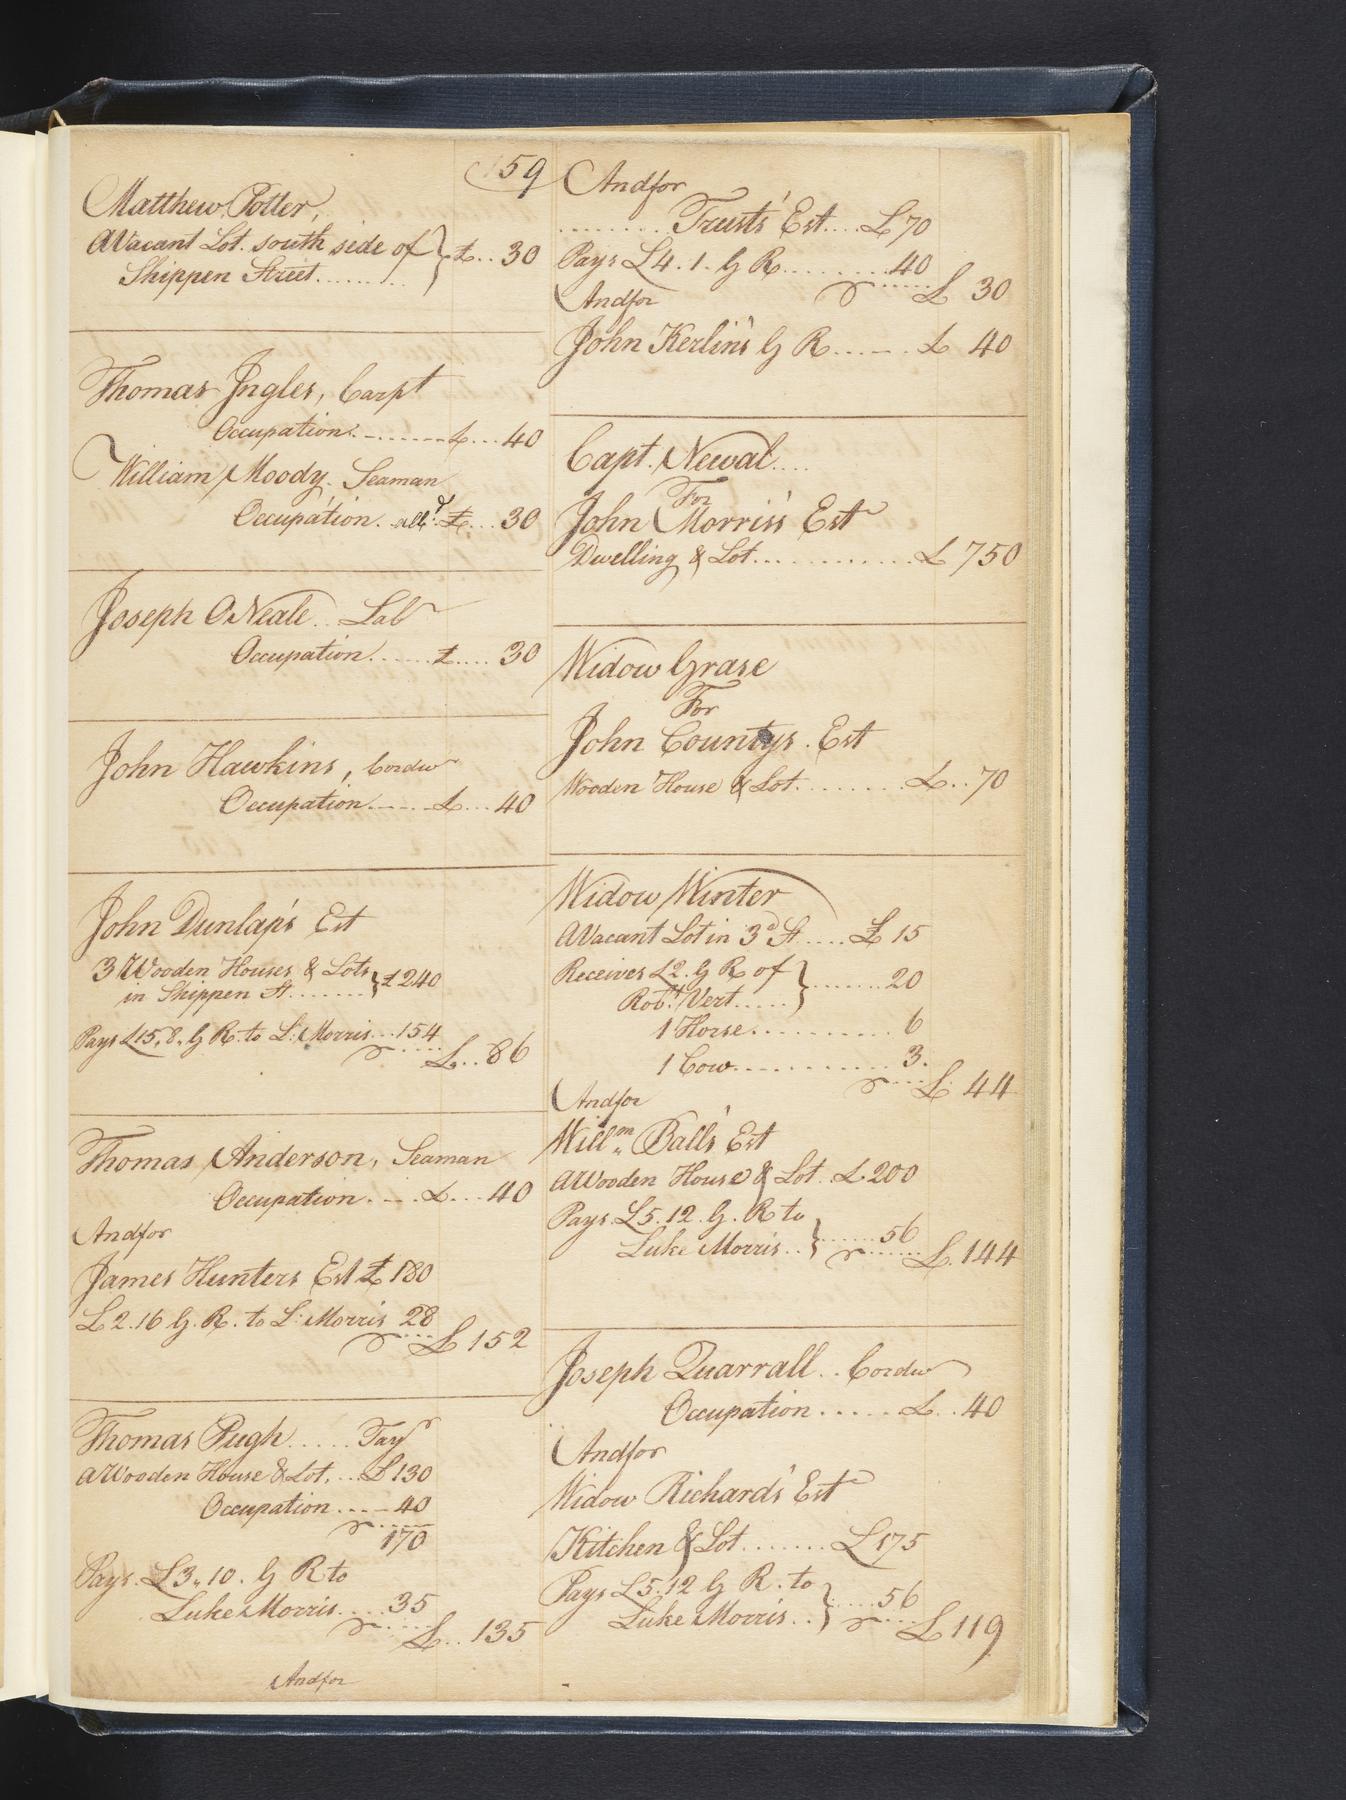 159
Matthew Potter,
A Vacant Lot. south side of } £.. 30
Shippen Street........
Thomas Ingles, Carpt
Occupation.........£...40
William Moody. Seaman
Occupation. abtd. £....30
Joseph ONeale.. Labr
Occupation......£.... 30
John Hawkins, Cordwr
Occupation.....£...40
John Dunlap's Est
3 Wooden Houses & Lots } £240
in Shippen St.......
Pays £15.8. G R. to L: Morris...154
£..86
Thomas Anderson, Seaman
Occupation....£...40
And for
James Hunters Est £ 180
£2.16 G. R. to L: Morris 28
£ 152
Thomas Pugh..... Tayr
A Wooden House & Lot....£130
Occupation.....40
170
Pays. £3,,10. G R to
Luke Morris....35
£.. 135
And for
And for
........ Trusts' Est....£70
Pays £4.1. G R.........40
£ 30
And for
John Kerlin's G R...... £ 40
Capt. Newal....
For
John Morris's Este
Dwelling & Lot............£750
Widow Grase
For
John Countys. Est
Wooden House & Lot........£..70
Widow Winter
A Vacant Lot in 3d St.....£15
Receives £2. G R of } ........20
Robt. Vert.....
1 Horse.......... 6
1 Cow............ 3.
£. 44
And for
Willm. Ball's Est
A Wooden House & Lot. £.200
Pays. £5.12. G. R to
Luke Morris.. } ......56
£.144
Joseph Quarrall.. Cordwr
Occupation.....£..40
And for
Widow Richards' Este
Kitchen & Lot....... £175
Pays £5.12 G R. to
Luke Morris.. } .....56
£119